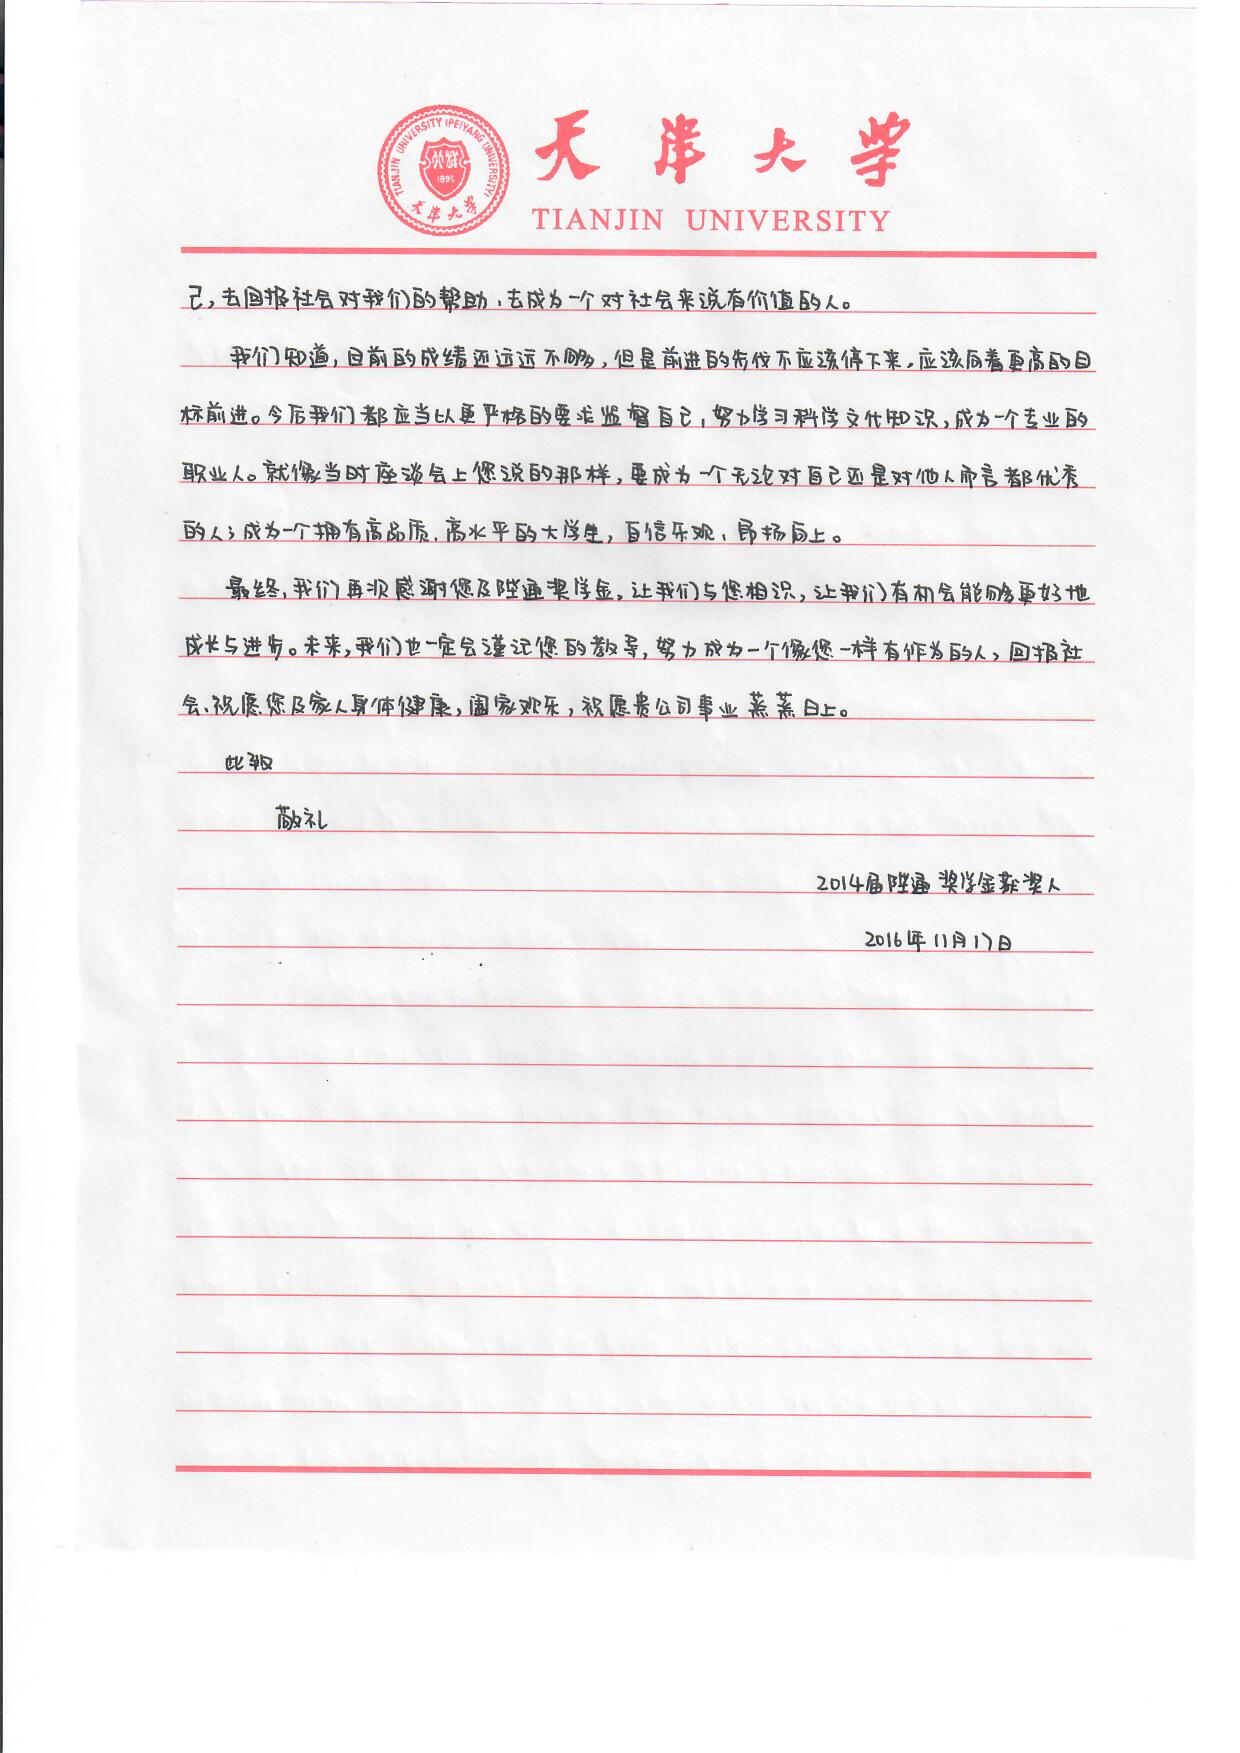 TIANJIN UNIVERSITY (PEIYANG UNIVERSITY)
北洋
1895
天津大学
天津大学
TIANJIN UNIVERSITY
己,去回报社会对我们的帮助、去成为一个对社会来说有价值的人。
我们知道,目前的成绩还远远不够,但是前进的步伐不应该停下来,应该向着更高的目
标前进。今后我们都应当以更严格的要求监督自己,努力学习科学文化知识,成为一个专业的
职业人。就像当时座谈会上您说的那样,要成为一个无论对自己还是对他人而言都优秀
的人;成为一个拥有高品质、高水平的大学生,自信乐观、昂扬向上。
最终,我们再次感谢您及陞通奖学金,让我们与您相识,让我们有机会能够更好地
成长与进步。未来,我们也一定会谨记您的教导,努力成为一个像您一样有作为的人,回报社
会、祝愿您及家人身体健康,阖家欢乐,祝愿贵公司事业蒸蒸日上。
此致
敬礼
2014届陞通奖学金获奖人
2016年11月17日